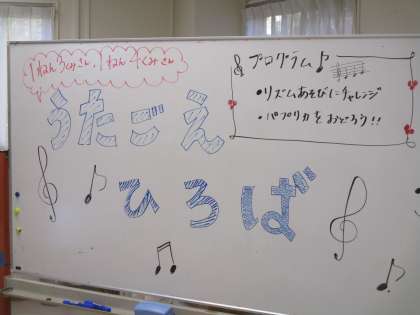 1ねん3くみさん、1ねん4くみさん
うたごえ
ひろば
プログラム♪
・リズムあそびにチャレンジ
・パプリカをおどろう!!